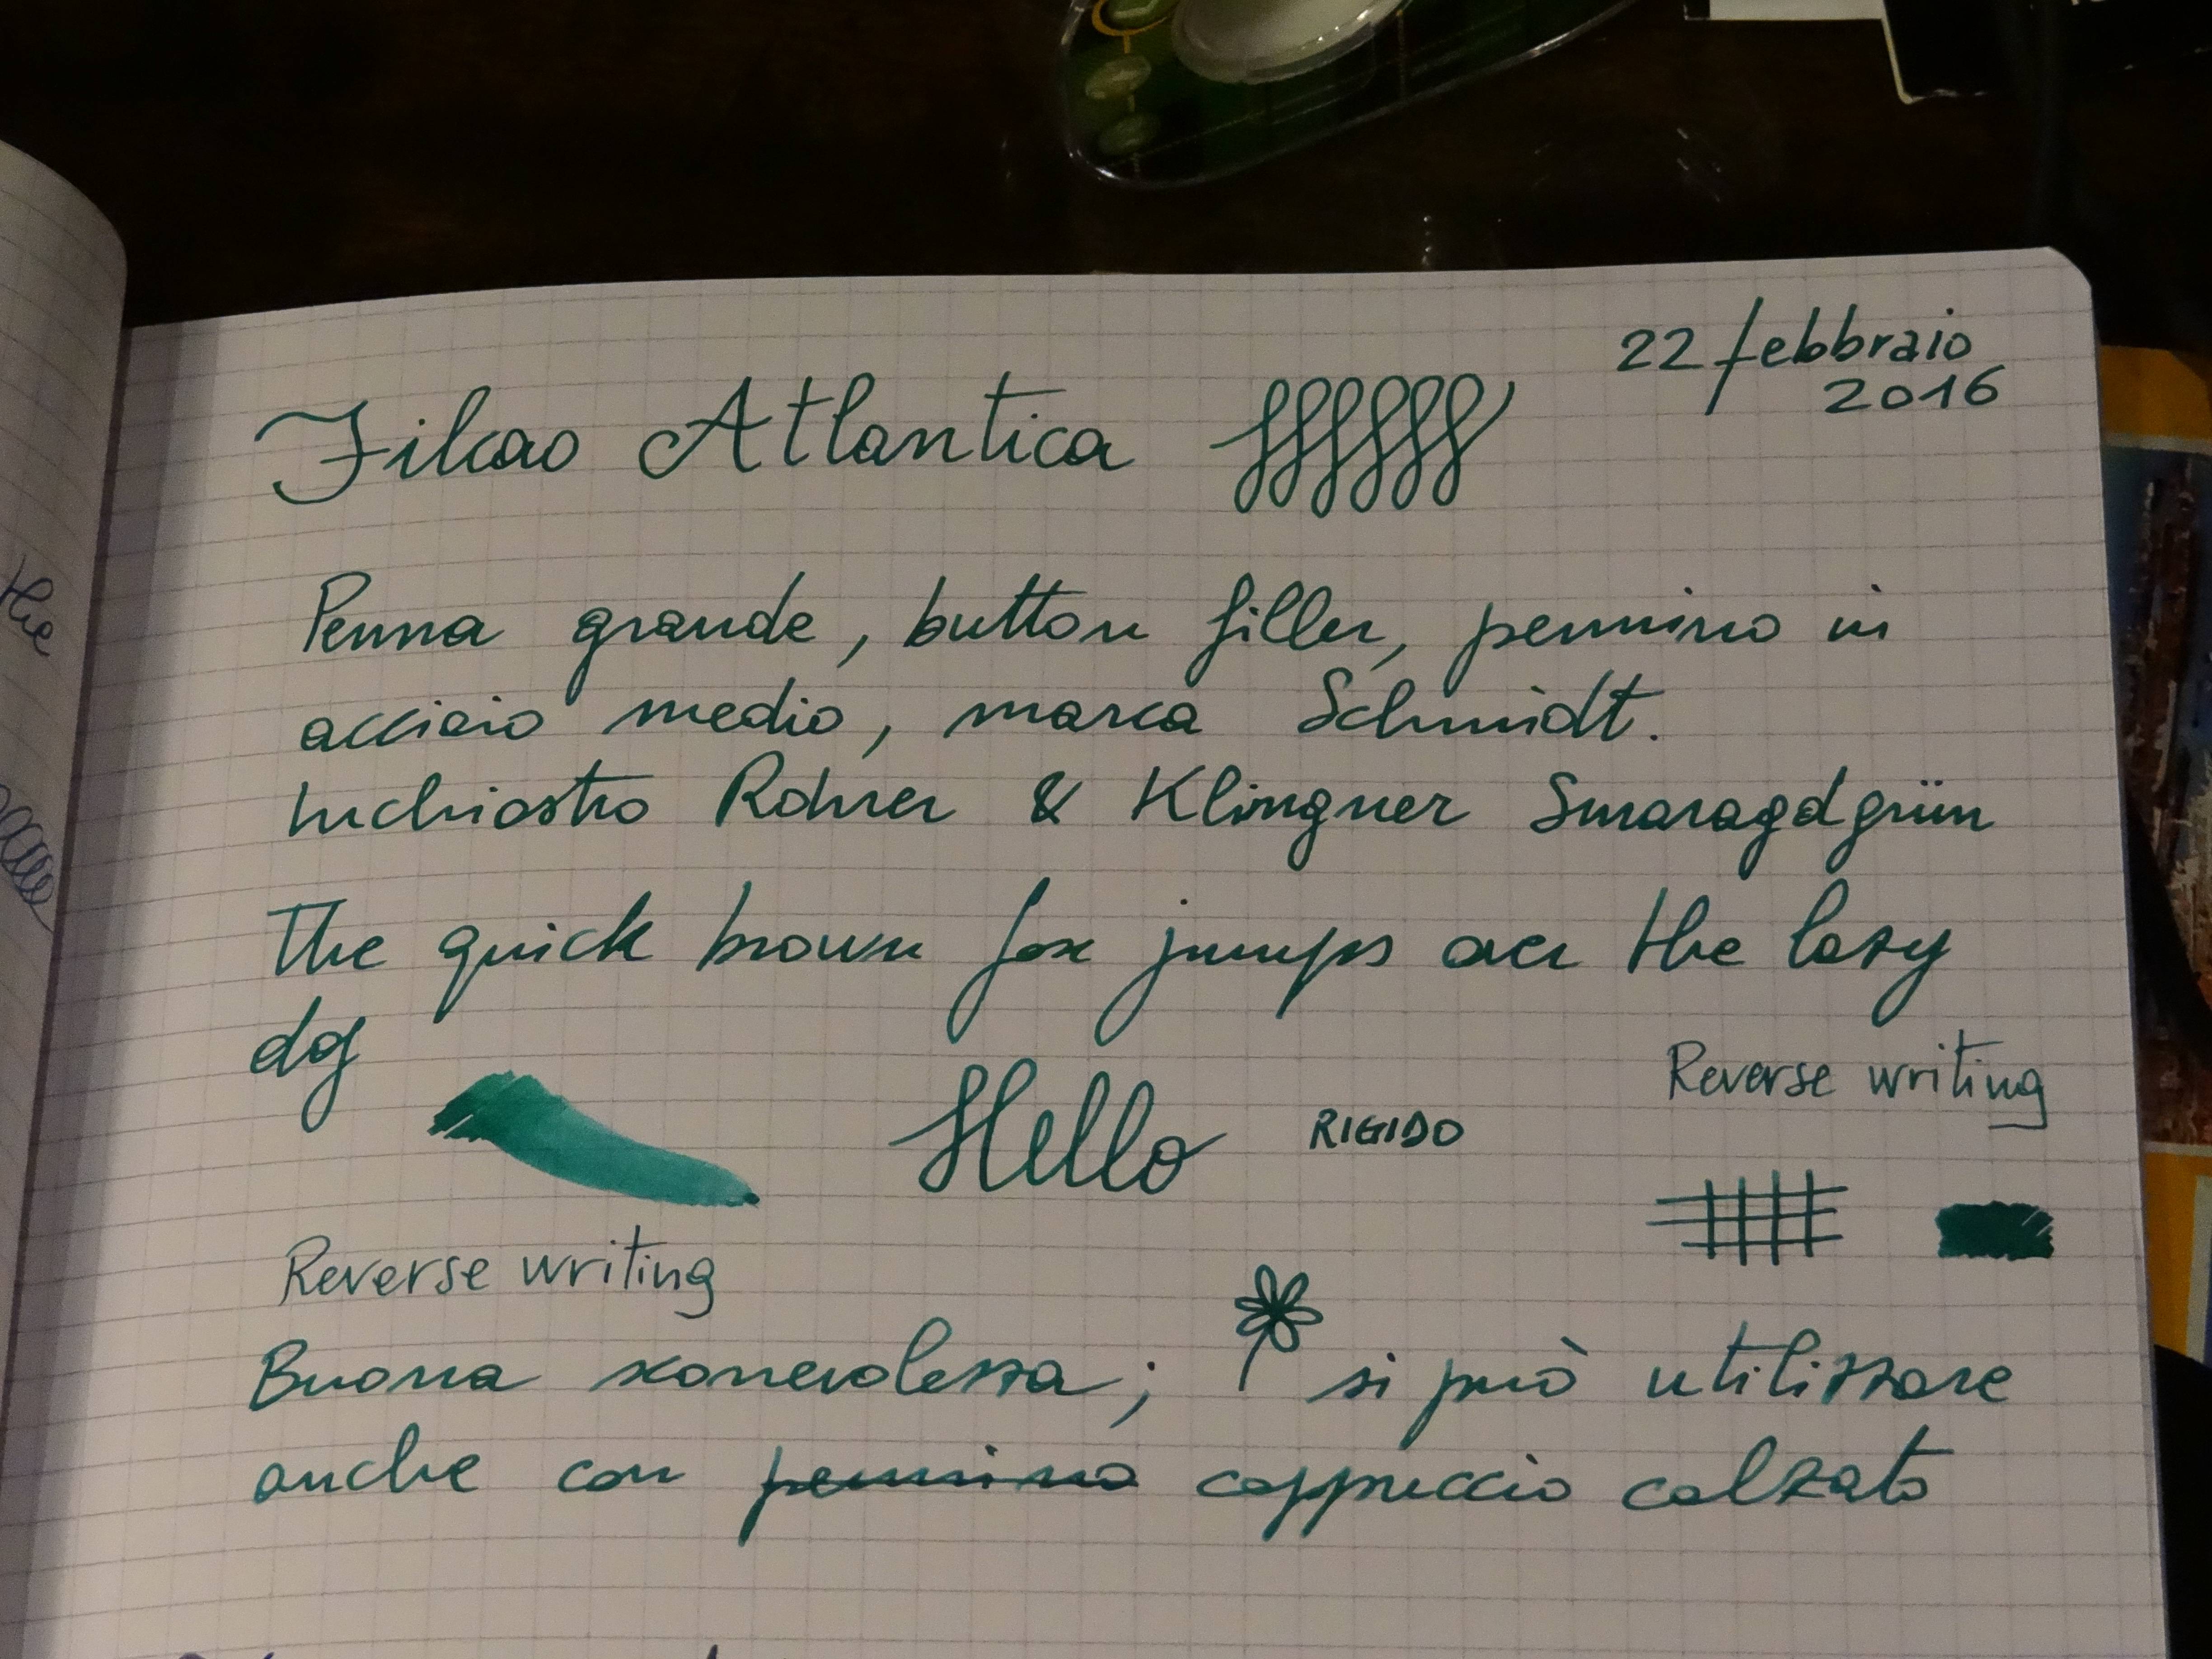 22 febbraio
2016
Filcao Atlantica
Penna grande, button filler, pennino in
acciaio medio, marca Schmidt.
Inchiostro Rohrer & Klingner Smaragdgrün
The quick brown fox jumps over the lazy
dog
Reverse writing
Hello RIGIDO
Reverse writing
Buona scorrevolezza; si può utilizzare
anche con pennino cappuccio calzato
the